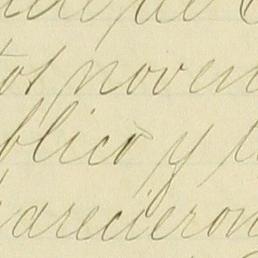 que
tos noven
blico y t
arecieron